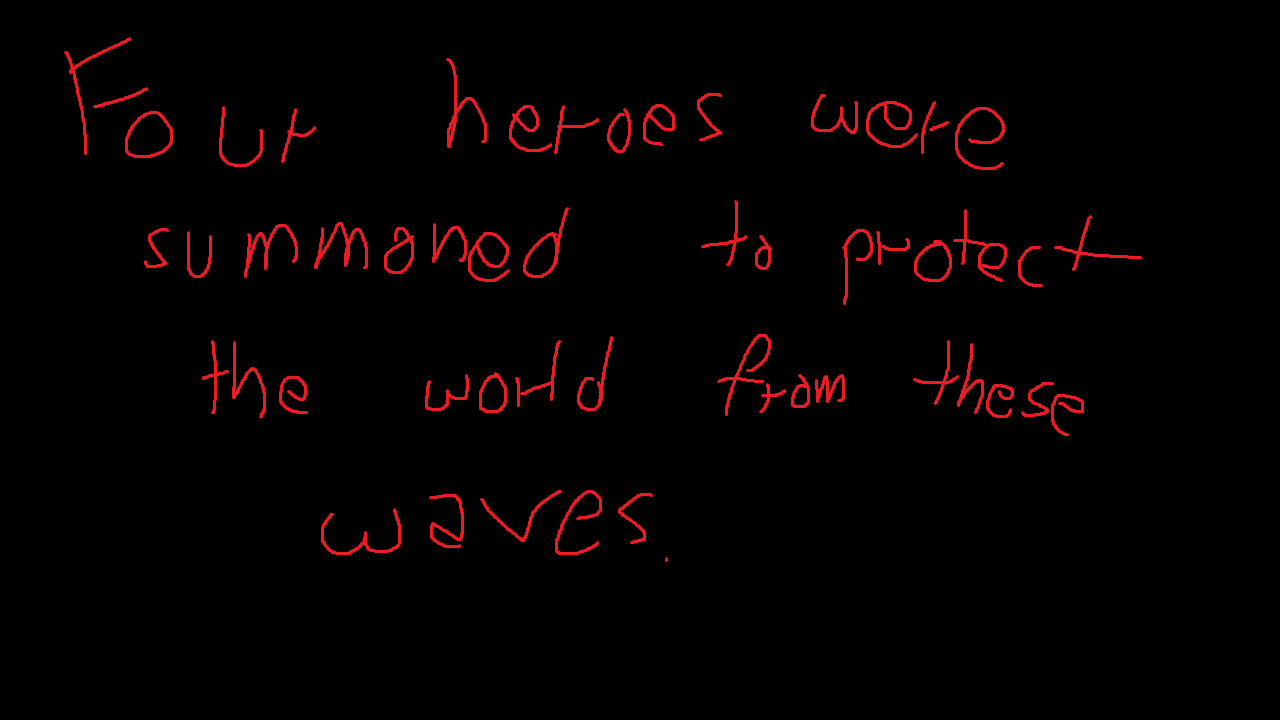 Four heroes were
summaned to protect
the world from these
waves.